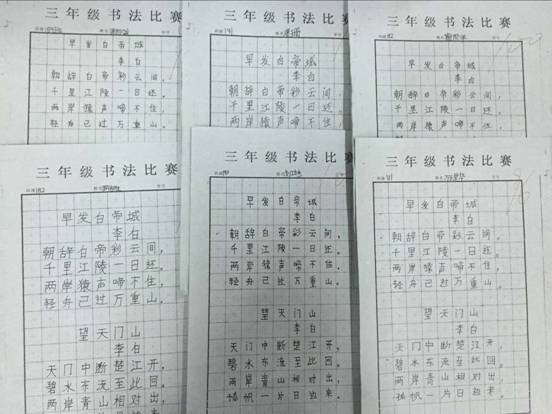 三年级书法比赛
早发白帝城
李白
朝辞白帝彩云间，
千里江陵一日还。
两岸猿声啼不住，
轻舟已过万重山。
三年级书法比赛
早发白帝城
李白
朝辞白帝彩云间，
千里江陵一日还，
两岸猿声啼不住，
三年级书法比赛
早发白帝城
李白
朝辞白帝彩云间，
千里江陵一日还。
两岸猿声啼不住，
轻舟已过万重山。
三年级书法比赛
早发白帝城
李白
朝辞白帝彩云间，
千里江陵一日还。
两岸猿声啼不住，
轻舟已过万重山。
望天门山
李白
天门中断楚江开，
碧水东流至此回。
两岸青山相对出，
三年级书法比赛
早发白帝城
李白
朝辞白帝彩云间，
千里江陵一日还。
两岸猿声啼不住，
轻舟已过万重山。
望天门山
李白
天门中断楚江开，
碧水东流至此回。
两岸青山相对出，
孤帆一片日边来。
三年级书法比赛
早发白帝城
李白
朝辞白帝彩云间，
千里江陵一日还。
两岸猿声啼不住，
轻舟已过万重山。
望天门山
李白
天门中断楚江开，
碧水东流至此回。
两岸青山相对出，
孤帆一片日边来。